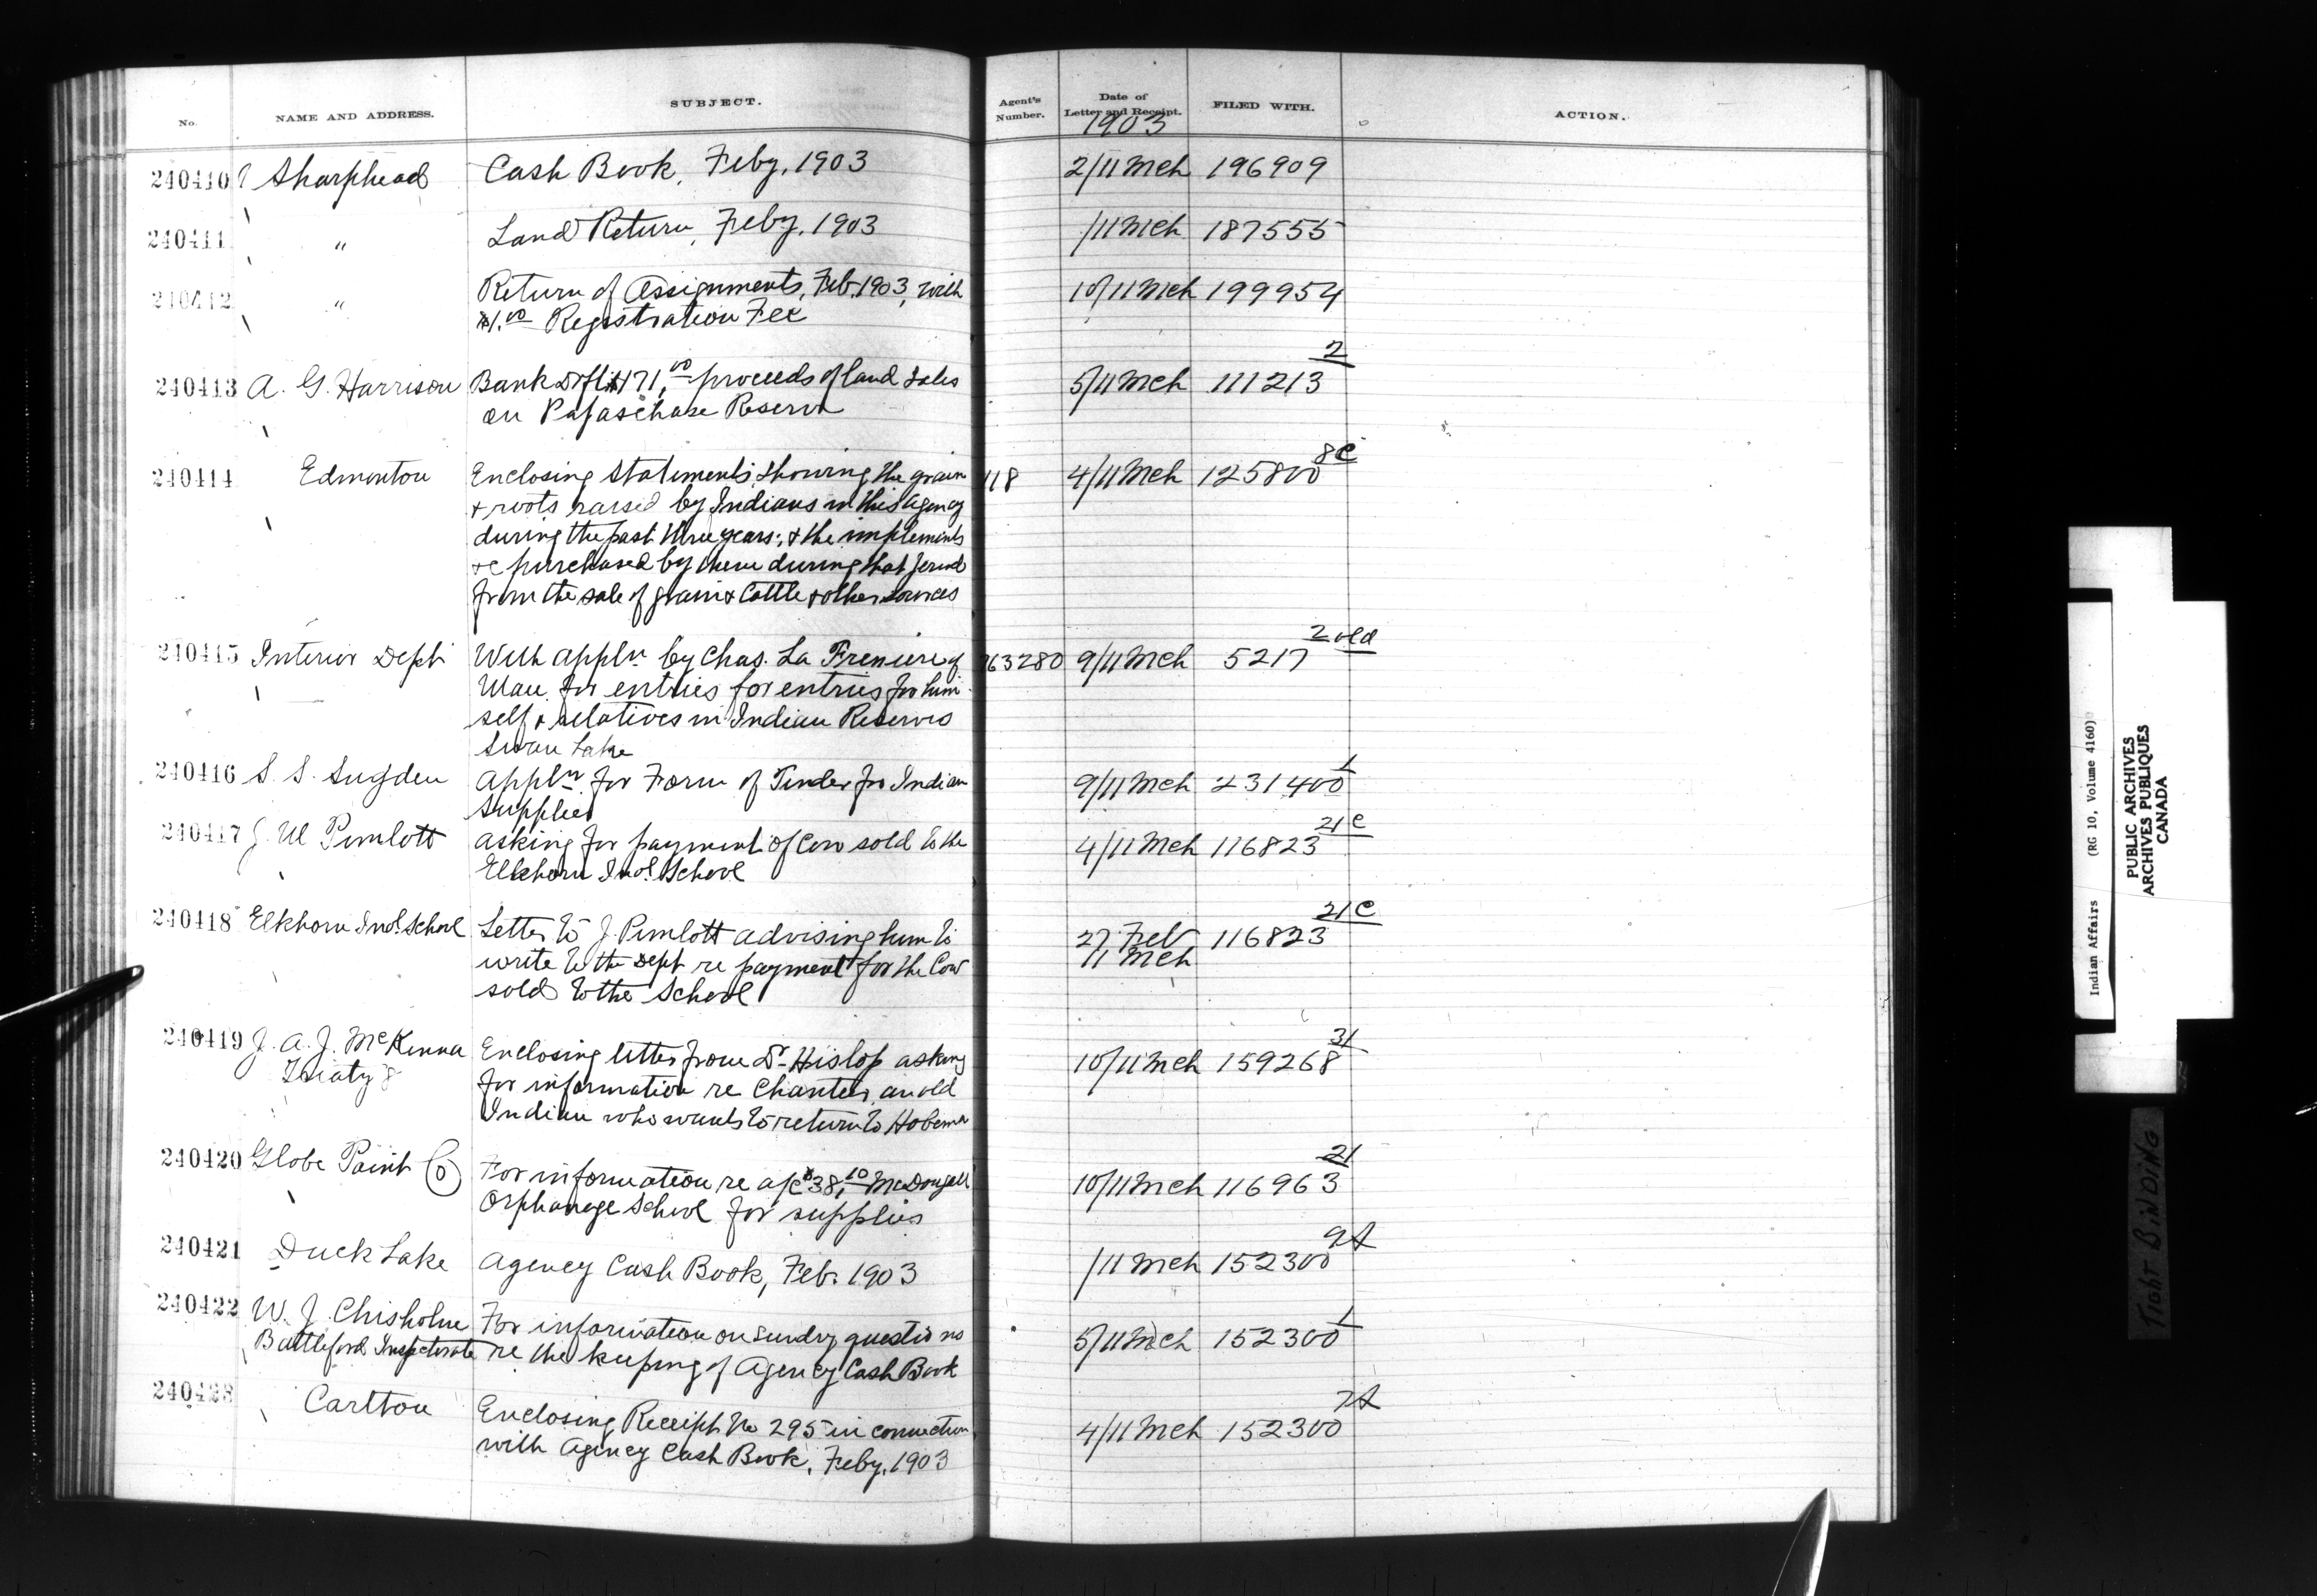 No. NAME AND ADDRESS. SUBJECT. Agent's Number. Date of Letter and Receipt. FILED WITH. ACTION.
1903
240410 Sharphead Cash Book, Feby, 1903 2/11 Mch 196909
240411 " Land Return, Feby, 1903 /11 Mch 187555
240412 " Return of Assignments, Feb. 1903, with 10/11 Mch 199954
$1.00 Registration Fee
2
240413 A. G. Harrison Bank Dft $171.00 proceeds of land sales 5/11 Mch 111213
on Papaschase Reserve
8c
240414 Edmonton Enclosing statements showing the grain 118 4/11 Mch 125800
& roots raised by Indians in this agency
during the past three years; & the implements
&c purchased by them during that period
from the sale of grain & Cattle & other sources
2 old
240415 Interior Dept With appln by Chas. La Freniere of 763280 9/11 Mch 5217
Man for entries for entries for him
self & relatives in Indian Reserves
Swan Lake
1
240416 S. S. Sugden appln for Form of Tender for Indian 9/11 Mch 231400
Supplies
21c
240417 J. W Pimlott asking for payment of Cow sold to the 4/11 Mch 116823
Elkhorn Indl School
21c
240418 Elkhorn Indl. School Letter to J. Pimlott advising him to 27 Feb 116823
write to the Dept re payment for the Cow 11 Mch
sold to the School
31
240419 J. A. J. McKenna Enclosing letter from Dr Hislop asking 10/11 Mch 159268
Treaty 8 for information re Chantees, an old
Indian who wants to return to Hobema
21
240420 Globe Paint Co For information re a/c $38.10 McDougall 10/11 Mch 116963
Orphanage School for supplies
9A
240421 Duck Lake Agency Cash Book, Feb. 1903 /11 Mch 152300
1
240422 W. J. Chisholm For information on sundry questions 5/11 Mch 152300
Battleford Inspectorate re the keeping of Agency Cash Book
7A
240423 Carlton Enclosing Receipt No 295 in connection 4/11 Mch 152300
with Agency Cash Book, Feby, 1903
Indian Affairs (RG 10, Volume 4160)
PUBLIC ARCHIVES
ARCHIVES PUBLIQUES
CANADA
TIGHT BINDING